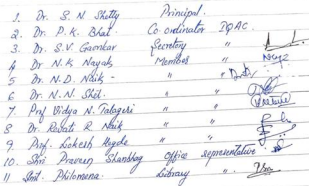 1. Dr. S. N. Shetty Principal.
2. Dr. P. K. Bhat Co ordinator IQAC.
3. Dr. S.V. Gaonkar Secretory
4 Dr N. K Nayak Member
5. Dr. N.D. Naik - " "
6. Dr. N. N. Shet. " "
7 Prof Vidya N. Talageri " "
8 Dr. Revati R Naik " "
9. Prof. Lokesh Hegde " "
10. Shri Praveen Shanbhag Office representative
11 Smt. Philomena. Library "